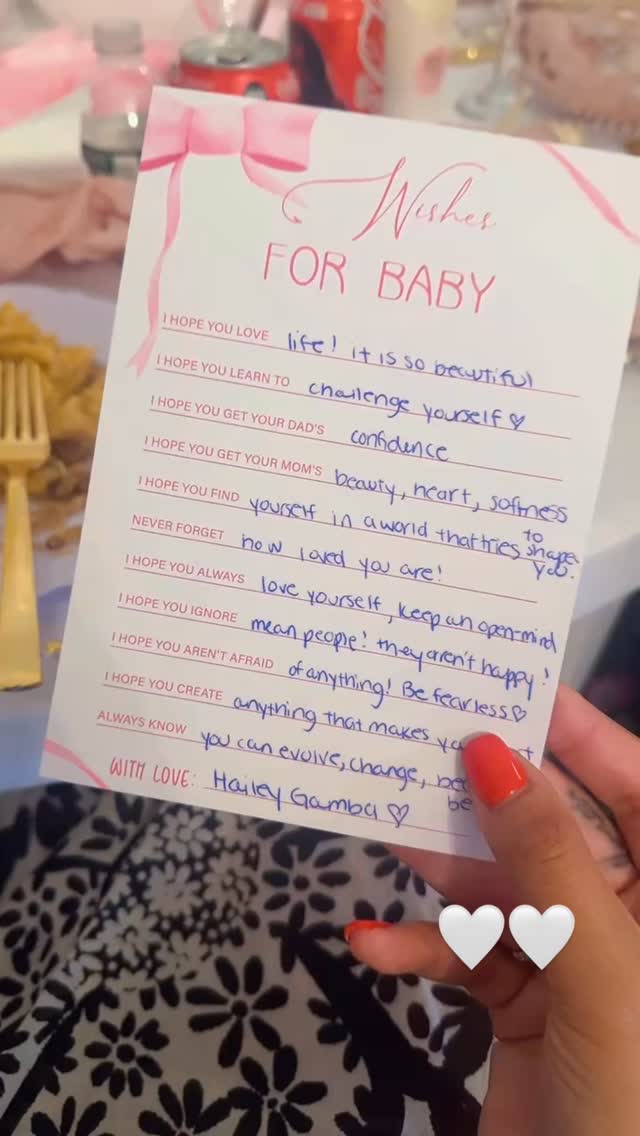 Wishes
FOR BABY
I HOPE YOU LOVE life! it is so beautiful
I HOPE YOU LEARN TO challenge yourself ♡
I HOPE YOU GET YOUR DAD'S confidence
I HOPE YOU GET YOUR MOM'S beauty, heart, softness
I HOPE YOU FIND yourself in a world that tries to shape you.
NEVER FORGET how loved you are!
I HOPE YOU ALWAYS love yourself, keep an open-mind
I HOPE YOU IGNORE mean people! they aren't happy!
I HOPE YOU AREN'T AFRAID of anything! Be fearless ♡
I HOPE YOU CREATE anything that makes
ALWAYS KNOW you can evolve, change,
WITH LOVE: Hailey Gamba ♡